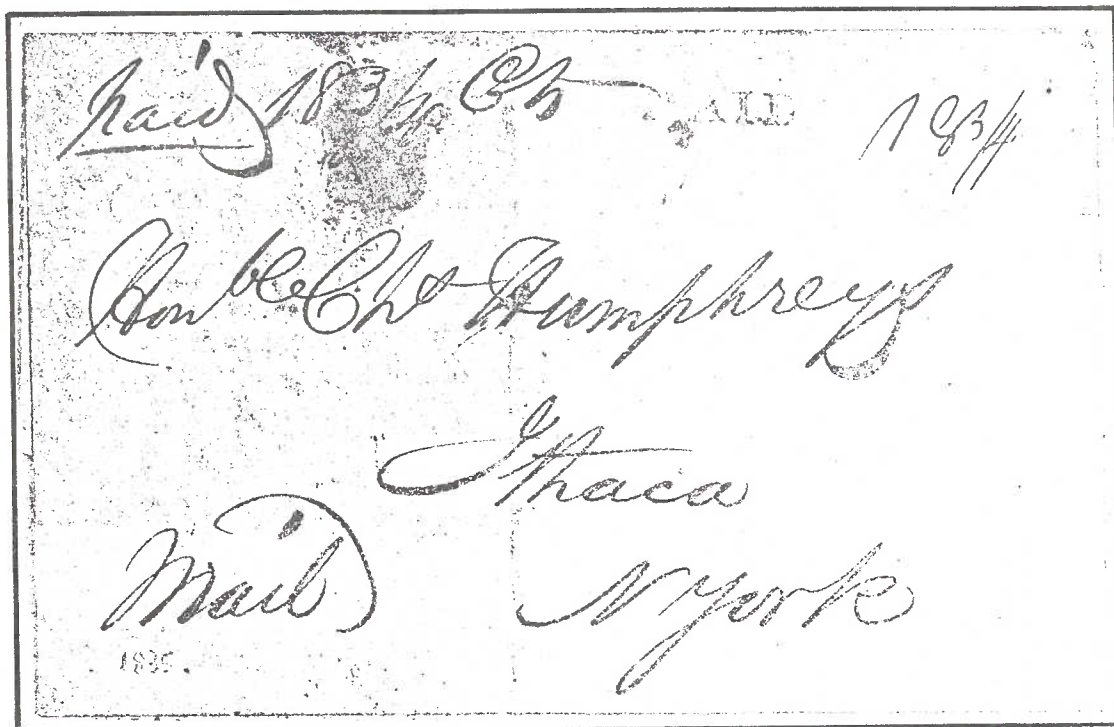 paid 18 3/4 Cts PAID 18 3/4
Hon ble Chs Humphreys
Ithaca
Mail N York